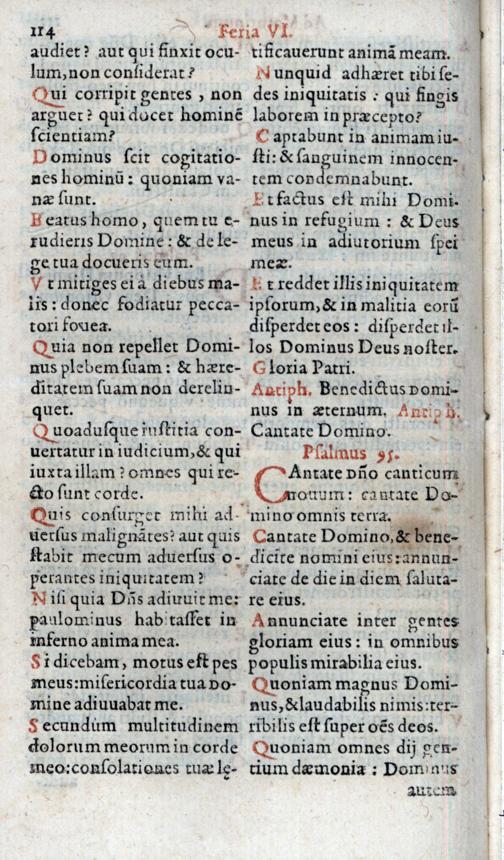 114
Feria VI.
audiet? aut qui finxit ocu-
lum, non considerat?
Qui corripit gentes, non
arguet? qui docet hominē
scientiam?
Dominus scit cogitatio-
nes hominū: quoniam va-
næ sunt.
Beatus homo, quem tu e-
rudieris Domine: & de le-
ge tua docueris eum.
Vt mitiges ei à diebus ma-
lis: donec fodiatur pecca-
tori fovea.
Quia non repellet Domi-
nus plebem suam: & hære-
ditatem suam non derelin-
quet.
Quoadusque iustitia con-
uertatur in iudicium, & qui
iuxta illam? omnes qui re-
cto sunt corde.
Quis consurget mihi ad-
uersus malignātes? aut quis
stabit mecum aduersus o-
perantes iniquitatem?
Nisi quia Dñs adiuuit me:
paulominus habitasset in
inferno anima mea.
Si dicebam, motus est pes
meus: misericordia tua Do-
mine adiuuabat me.
Secundum multitudinem
dolorum meorum in corde
meo: consolationes tuæ lę-
tificauerunt animā meam.
Nunquid adhæret tibi se-
des iniquitatis: qui fingis
laborem in præcepto?
Captabunt in animam iu-
sti: & sanguinem innocen-
tem condemnabunt.
Et factus est mihi Domi-
nus in refugium: & Deus
meus in adiutorium spei
meæ.
Et reddet illis iniquitatem
ipsorum, & in malitia eorū
disperdet eos: disperdet il-
los Dominus Deus noster.
Gloria Patri.
Antiph. Benedictus Domi-
nus in æternum. Antiph.
Cantate Domino.
Psalmus 95.
CAntate Dño canticum
nouum: cantate Do-
mino omnis terra.
Cantate Domino, & bene-
dicite nomini eius: annun-
ciate de die in diem saluta-
re eius.
Annunciate inter gentes
gloriam eius: in omnibus
populis mirabilia eius.
Quoniam magnus Domi-
nus, & laudabilis nimis: ter-
ribilis est super oēs deos.
Quoniam omnes dij gen-
tium dæmonia: Dominus
autem